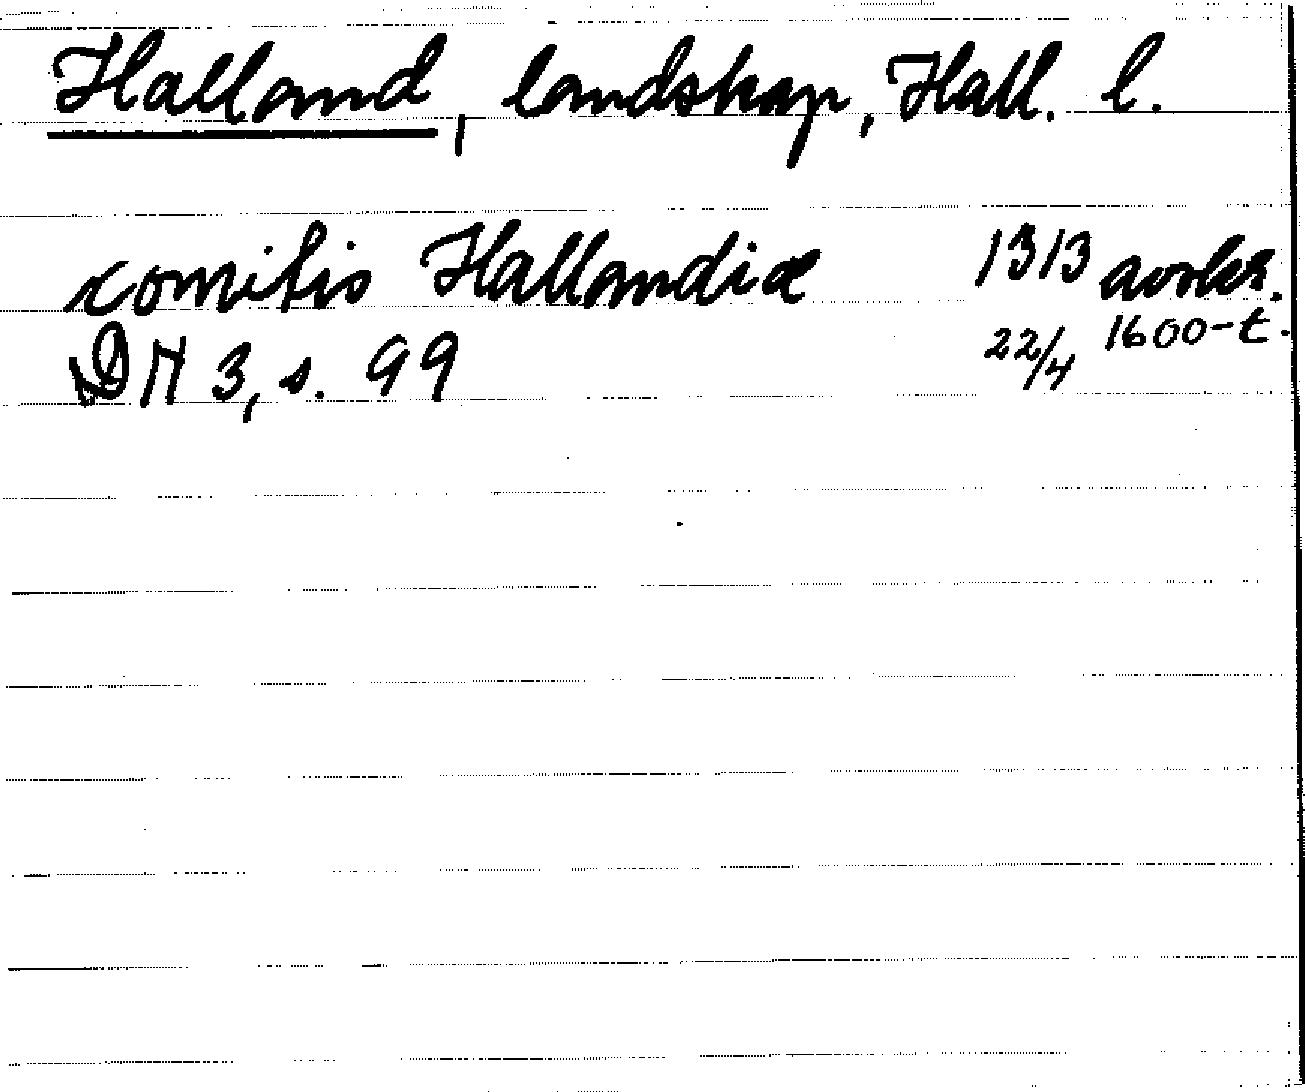 Halland, landskap, Hall. l.
comitis Hallandiæ 1313 avskr.
DN 3, s. 99 22/4 1600-t.